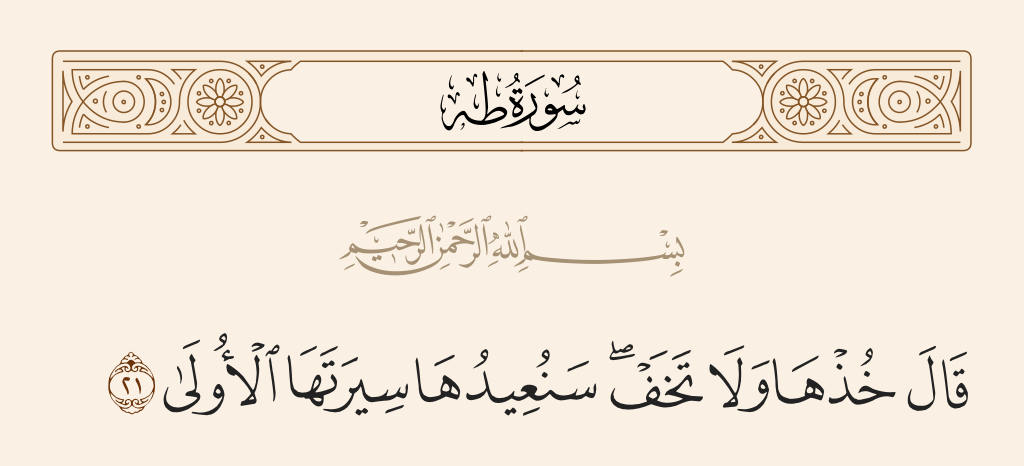 سُورَةُ طه
بِسْمِ ٱللَّهِ ٱلرَّحْمَٰنِ ٱلرَّحِيمِ
قَالَ خُذْهَا وَلَا تَخَفْ ۖ سَنُعِيدُهَا سِيرَتَهَا ٱلْأُولَىٰ ٢١